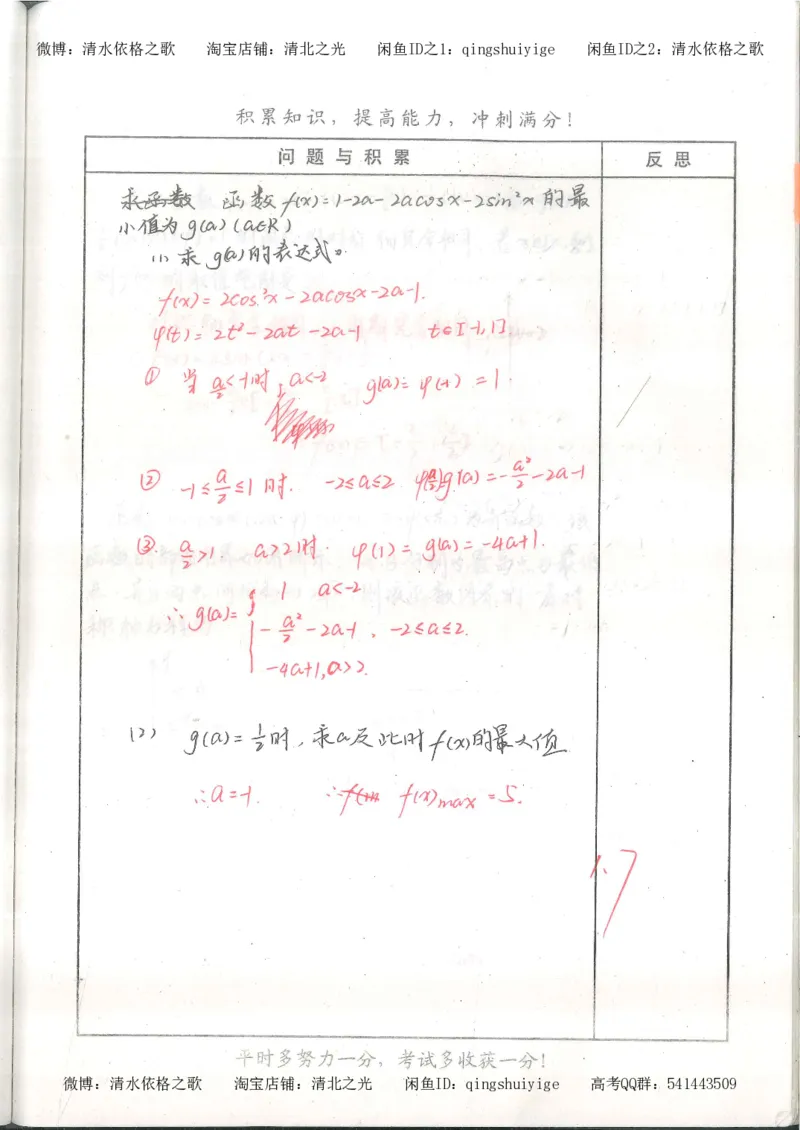 微博：清水依格之歌 淘宝店铺：清北之光 闲鱼ID之1：qingshuiyige 闲鱼ID之2：清水依格之歌
积累知识，提高能力，冲刺满分！
问题与积累 反思
求函数 函数f(x)=1-2a-2acosx-2sin²x的最
小值为g(a)(a∈R)
(1) 求g(a)的表达式。
f(x)=2cos²x-2acosx-2a-1.
φ(t)=2t²-2at-2a-1 t∈[-1,1]
① 当a/2<-1时，a<-2 g(a)=φ(-1)=1.
② -1≤a/2≤1时. -2≤a≤2 φ(a/2)g(a)=-a²/2-2a-1
③. a/2>1. a>2时 φ(1)=g(a)=-4a+1.
∴g(a)={ 1 a<-2
-a²/2-2a-1，-2≤a≤2.
-4a+1,a>2.
(2) g(a)=1/2时，求a及此时f(x)的最大值
∴a=-1. ∴f(x)max=5.
1.7
平时多努力一分，考试多收获一分！
微博：清水依格之歌 淘宝店铺：清北之光 闲鱼ID：qingshuiyige 高考QQ群：541443509